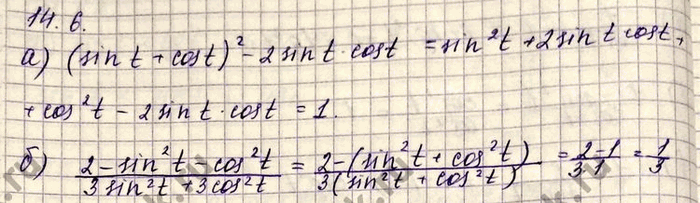 14.6.
а) (sin t + cos t)² - 2 sin t · cos t = sin²t + 2 sin t cos t +
+ cos²t - 2 sin t · cos t = 1.
б) (2 - sin²t - cos²t)/(3 sin²t + 3 cos²t) = (2 - (sin²t + cos²t))/(3(sin²t + cos²t)) = (2-1)/(3·1) = 1/3